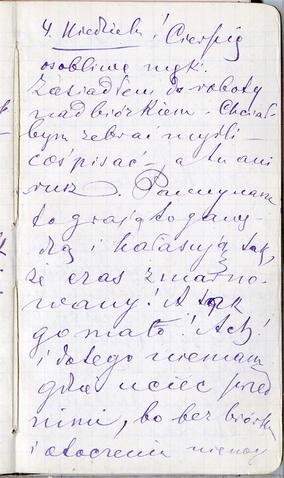 4. Niedziela! Cierpię
osobliwe męki.
Zasiadłem do roboty
nad biórkiem. Chciał-
bym zebrać myśli
coś pisać – a tu ani
rusz.
to grają to gawę-
dzą i hałasują tak,
że czas zmarno-
wany! A tak
go mało! Ach!
i do tego niemam
gdzie uciec przed
nimi, bo bez biórka
i otoczenia niemogę